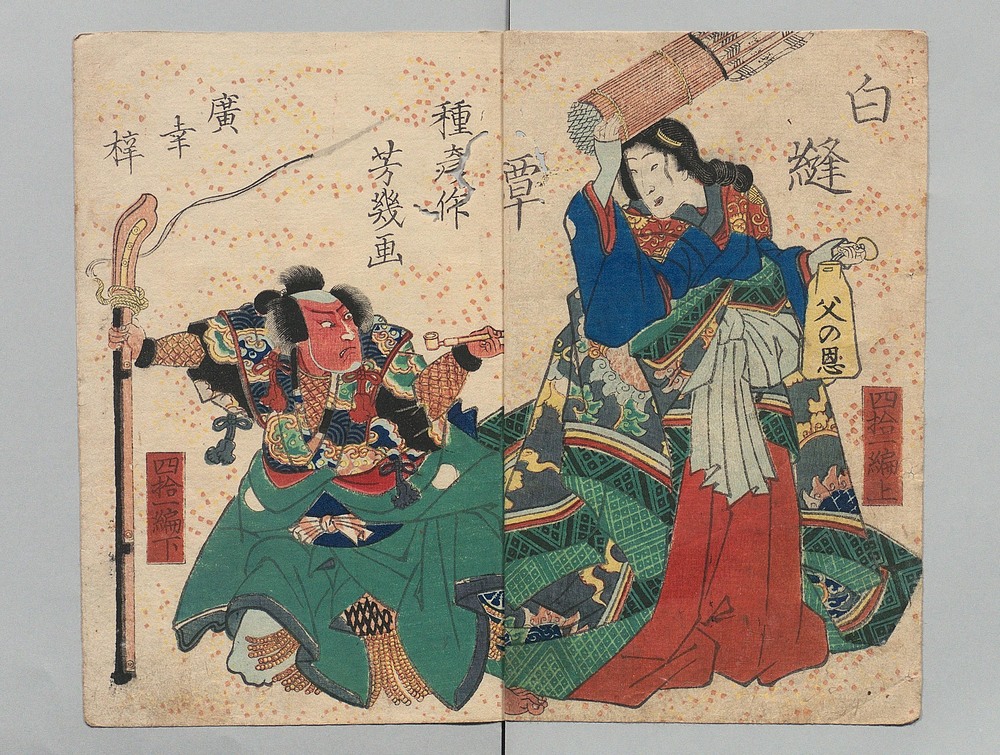 白
縫
譚
父の恩
四拾一編上
種彦作
芳幾画
廣
幸
梓
四拾一編下